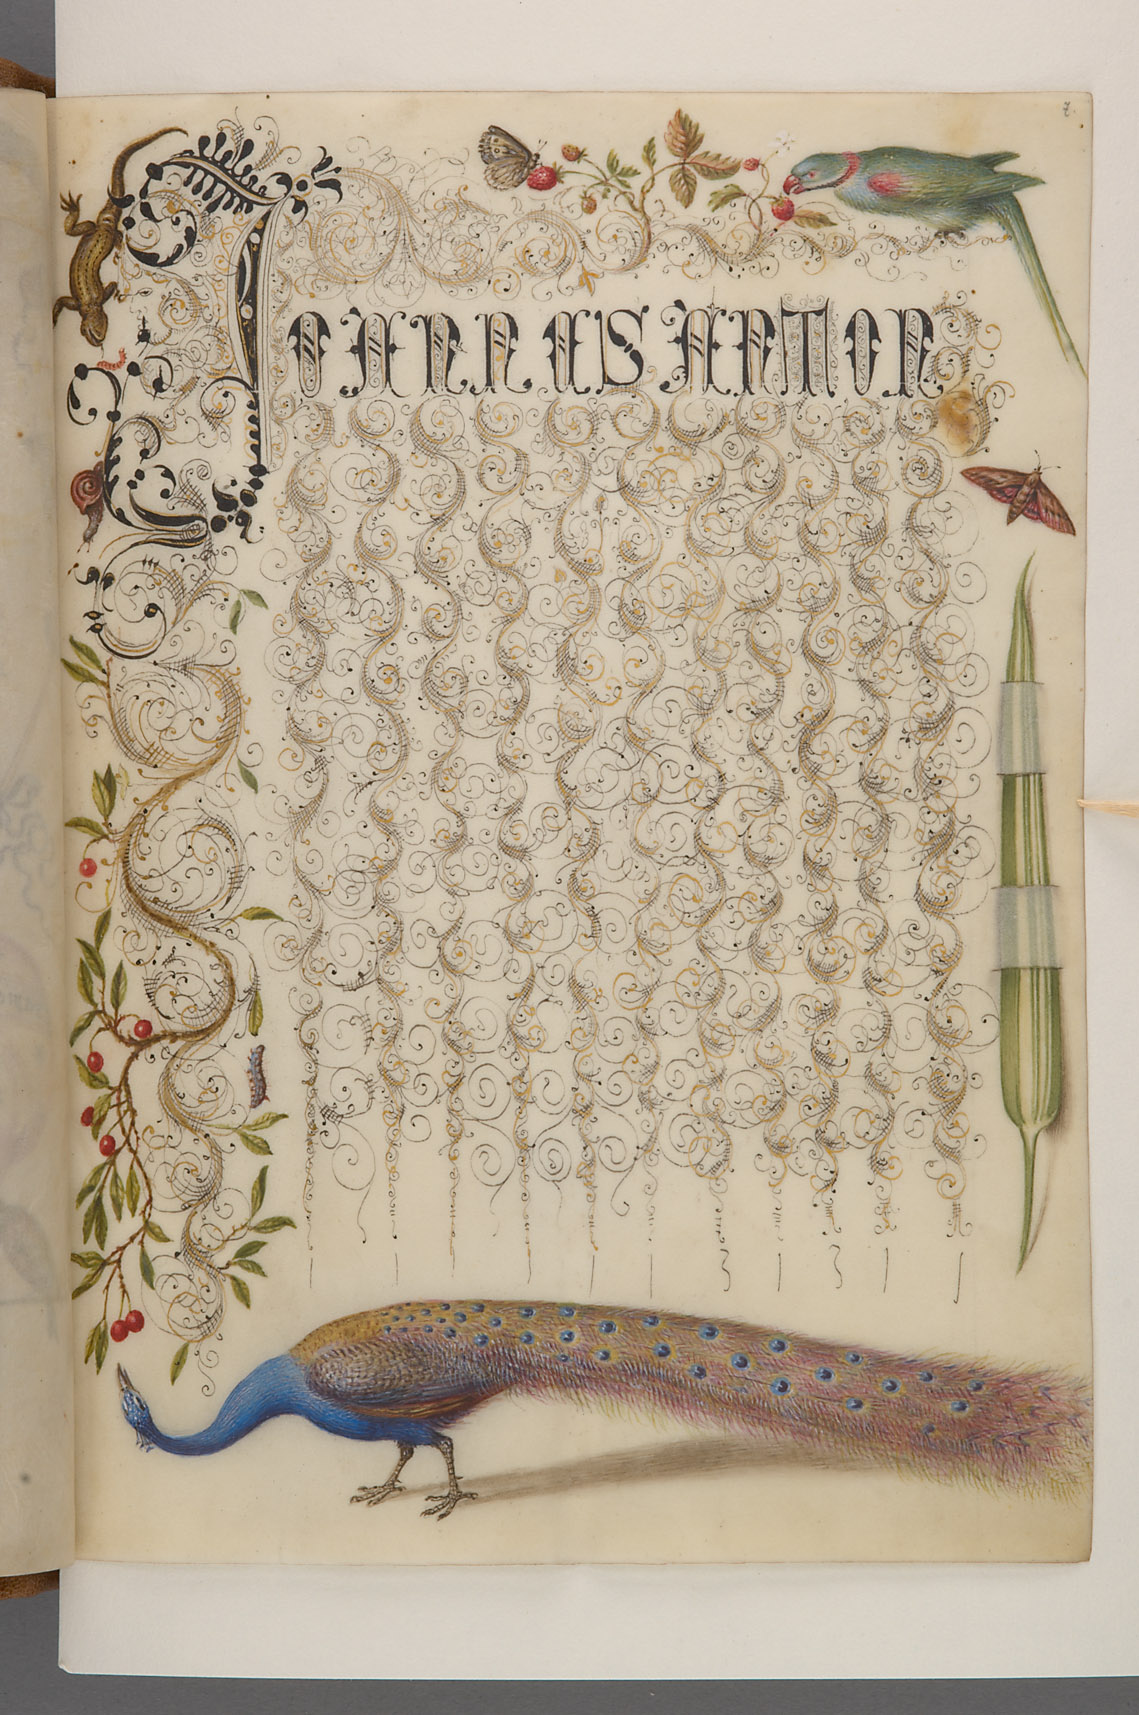 7.
JOANNES ANTON